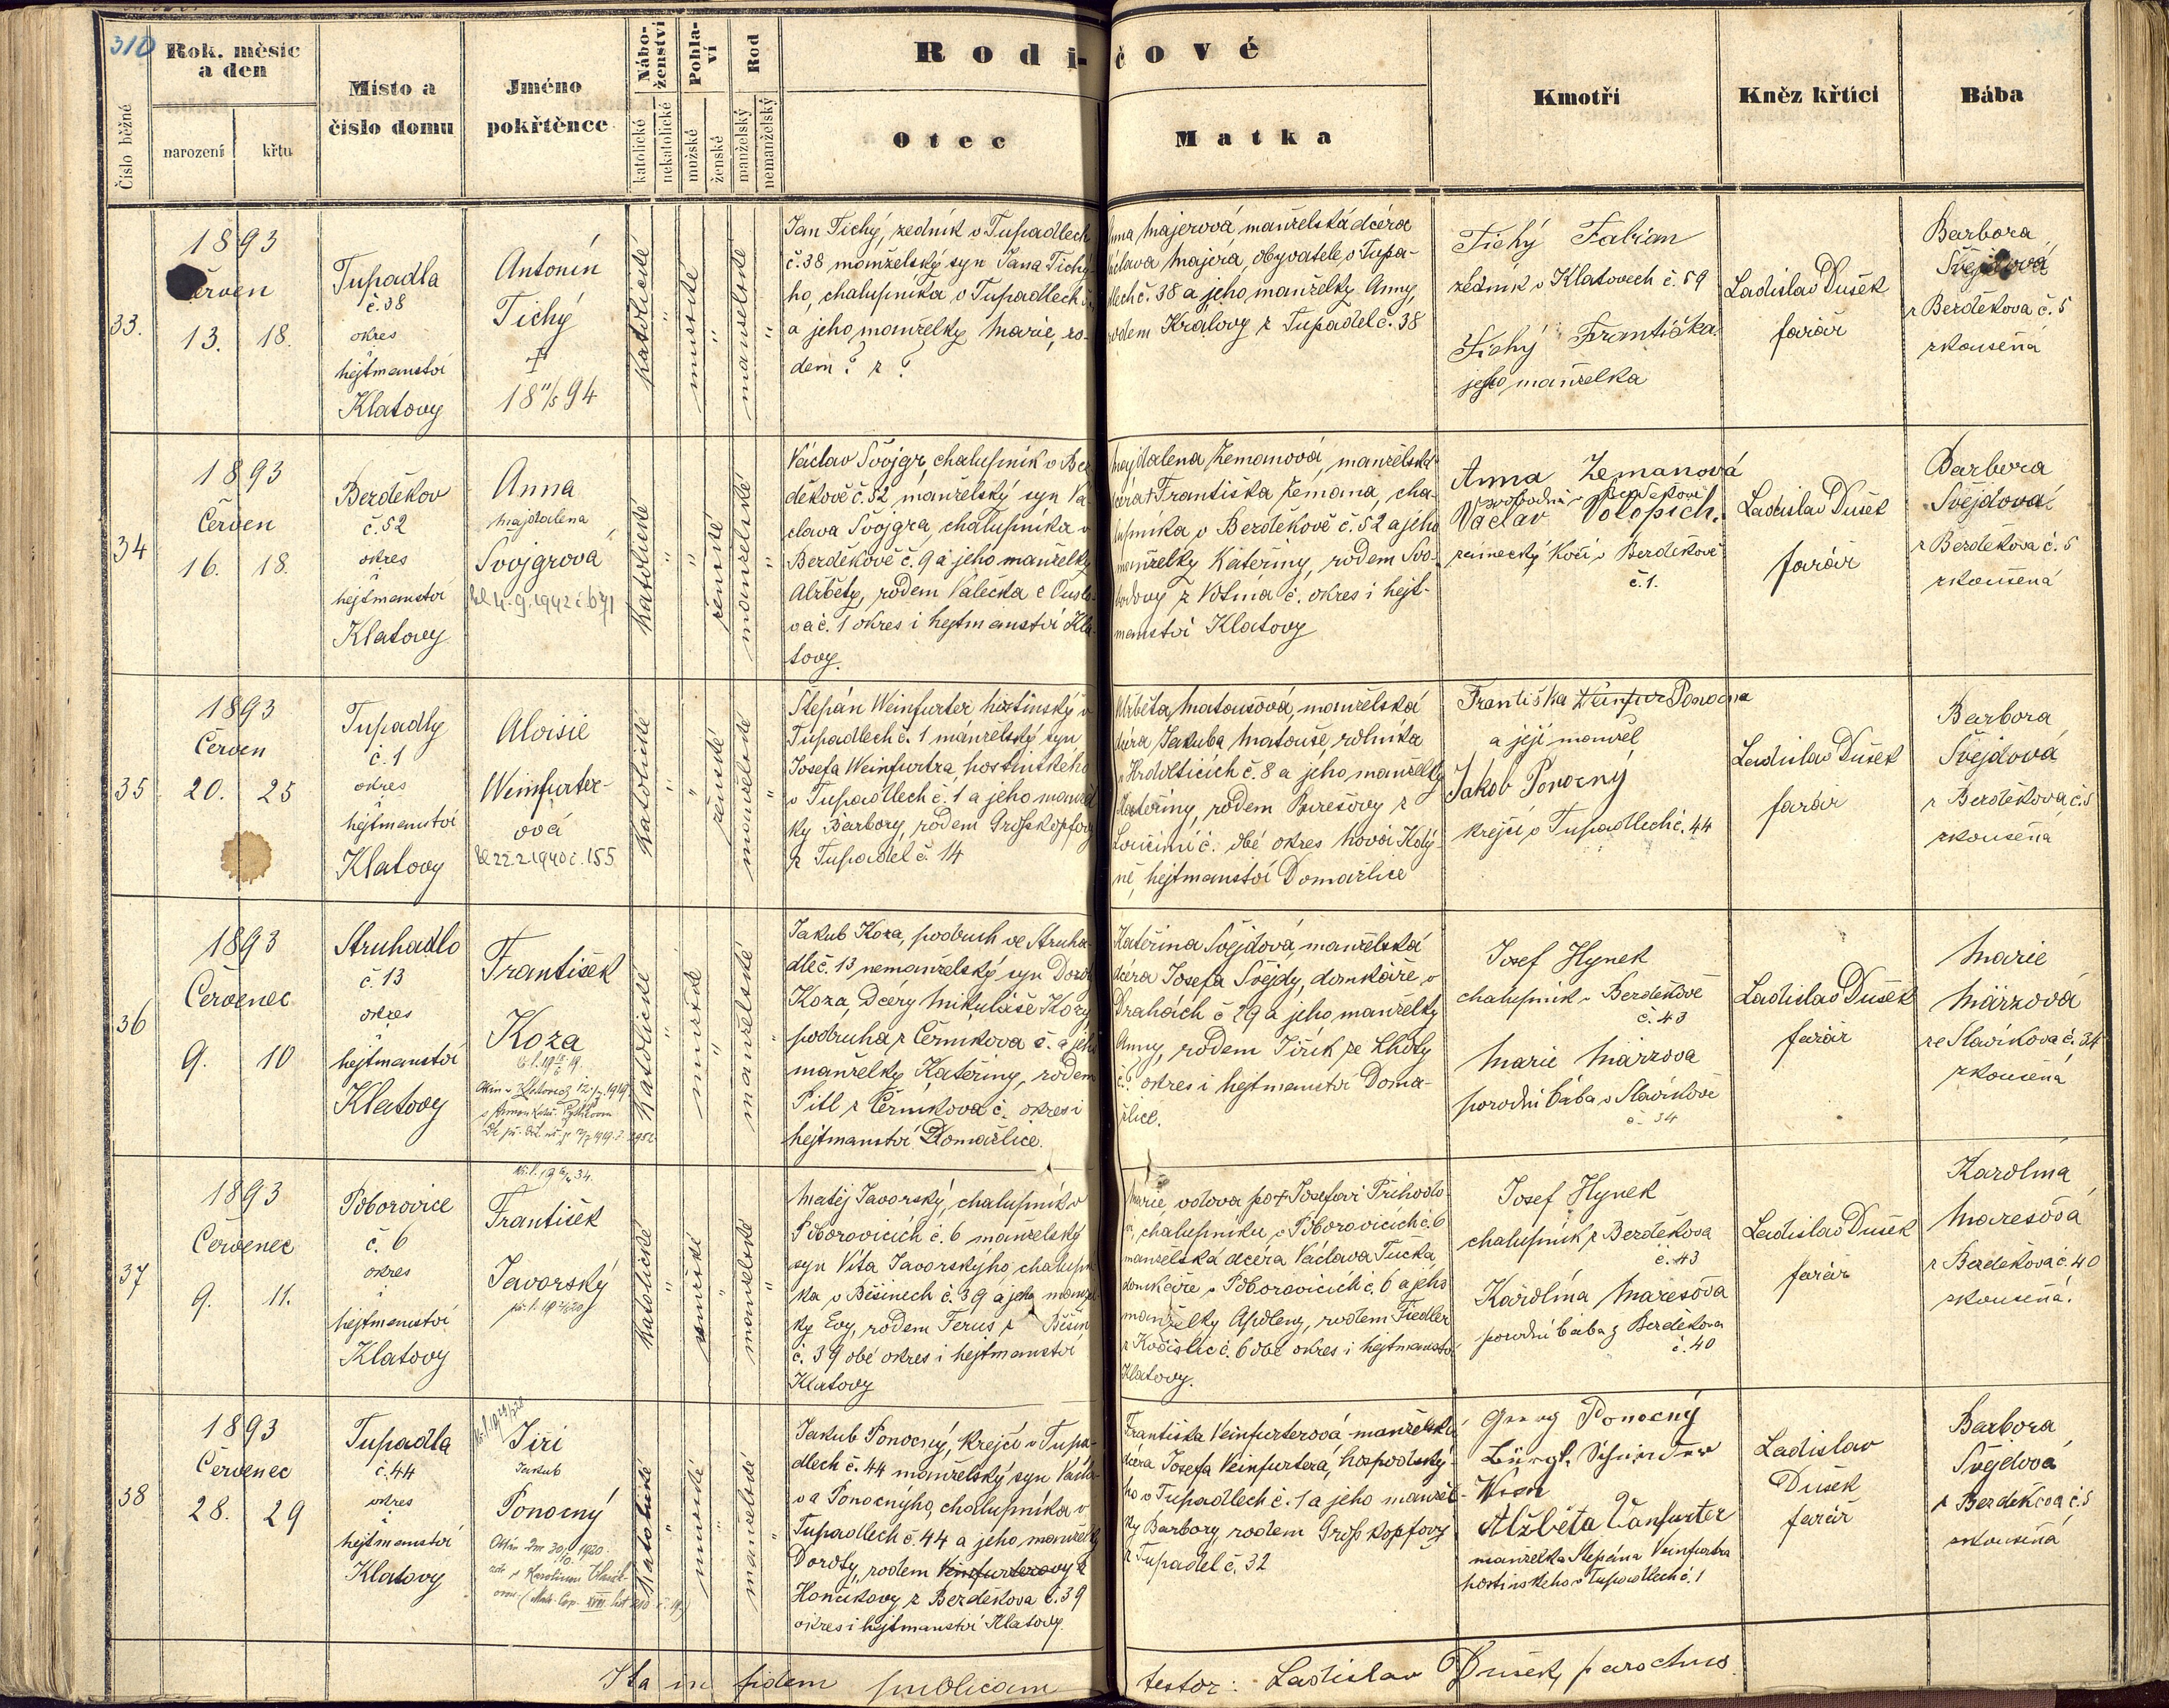 310
Číslo běžné
Rok, měsíc
a den
narození
křtu
Místo a
číslo domu
Jméno
pokřtěnce
Nábo-
ženství
katolické
nekatolické
Pohla-
ví
mužské
ženské
Rod
manželský
nemanželský
Rodi-čové
Otec
Matka
Kmotři
Kněz křtící
Bába
33.
1893
Červen
13. 18.
Tupadla
č. 38
okres
i
hejtmanství
Klatovy
Antonín
Tichý
†
18 11/5 94
katolické
"
mužské
"
manželské
"
Jan Tichý, zedník v Tupadlech
č. 38 manželský syn Jana Tichý-
ho, chalupníka v Tupadlech
a jeho manželky Marie, ro-
dem ? z ?
Anna Majerová manželská dcéra
Václava Majera, obyvatele v Tupa-
dlech č. 38 a jeho manželky Anny,
rodem Kralovy z Tupadel č. 38
Tichý Fabian
zedník v Klatovech č. 59
Tichý Františka
jeho manželka
Ladislav Dušek
farář
Barbora
Švejdová
z Bezděkova č. 5
zkoušená
34
1893
Červen
16. 18.
Bezděkov
č. 52
okres
i
hejtmanství
Klatovy
Anna
Majdalena
Svojgrová
katolické
"
"
ženské
manželské
"
Václav Svojgr, chalupník v Bez-
děkově č. 52 manželský syn Vá-
clava Svojgra, chalupníka v
Bezděkově č. 9 a jeho manželky
Alžběty, rodem Valečka z
č. 1 okres i hejtmanství Kla-
tovy.
Majdalena Zemanová, manželská
dcéra † Františka Zemana, cha-
lupníka v Bezděkově č. 52 a jeho
manželky Kateřiny, rodem Svo-
bodovy z Votína č. okres i hejt-
manství Klatovy
Anna Zemanová
svobodná v Bezděkově
Václav Volopich.
zámecký kočí v Bezděkově
č. 1.
Ladislav Dušek
farář
Barbora
Švejdová
z Bezděkova č. 5
zkoušená
35
1893
Červen
20. 25
Tupadly
č. 1
okres
i
hejtmanství
Klatovy
Aloisie
Weinfurter-
ová
22.2.1940 č. 155
katolické
"
"
ženské
manželské
"
Štepán Weinfurter hostinský v
Tupadlech č. 1 manželský syn
Josefa Weinfurtra, hostinského
v Tupadlech č. 1 a jeho manžel
ky Barbory, rodem Grosskopfovy
z Tupadel č. 14
Alžběta Matoušová, manželská
dcéra Jakuba Matouše, rolníka
v Hrdolticích č. 8 a jeho manželky
Kateřiny, rodem Burešovy z
Loučimi č. obé okres Nová Kdy-
ně, hejtmanství Domažlice
Františka Ponocna
a její manžel
Jakob Ponocný
krejčí v Tupadlech č. 44
Ladislav Dušek
farář
Barbora
Švejdová
z Bezděkova č. 5
zkoušená
36
1893
Červenec
9. 10
Struhadlo
č. 13
okres
i
hejtmanství
Klatovy
František
Koza
katolické
"
mužské
"
manželské
"
Jakub Koza, podruh ve Struha-
dle č. 13, nemanželský syn Doroty
Koza, Dcéry Mikuláše Kozy
podruha z Černíkova č. a jeho
manželky Kateřiny, rodem
Pitl z Černíkova č. okres i
hejtmanství Domažlice.
Kateřina Švejdová, manželská
dcéra Josefa Švejdy, domkáře v
Drahách č 29 a jeho manželky
Anny, rodem Jiřík ze Lhoty
č. ? okres i hejtmanství Doma-
žlice.
Josef Hynek
chalupník v Bezděkově
č. 43
Marie Märzova
porodní bába v Slavíkově
č. 34
Ladislav Dušek
farář
Marie
Märzová
ze Slavíkova č. 34
zkoušená
37
1893
Červenec
9. 11.
Poborovice
č. 6
okres
i
hejtmanství
Klatovy
František
Javorský
katolické
"
mužské
"
manželské
"
Matěj Javorský, chalupník v
Poborovicích č. 6 manželský
syn Víta Javorskýho, chalupní
ka v Běšinech č. 39 a jeho manžel
ky Evy, rodem Ferus z Běšin
č. 39 obé okres i hejtmanství
Klatovy
Marie, vdova po † Josefovi Příhodo-
vi, chalupníku v Poborovicích č. 6
manželská dcéra Václava Tučka,
domkáře v Poborovicích č. 6 a jeho
manželky Apoleny, rodem Fiedler
z Kočislic č. 6 obé okres i hejtmanství
Klatovy.
Josef Hynek
chalupník z Bezděkova
č. 43
Karolína Marešova
porodní bába z Bezděkova
č. 40
Ladislav Dušek
farář
Karolína
Marešová
z Bezděkova č. 40
zkoušená.
38
1893
Červenec
28. 29
Tupadla
č. 44
okres
i
hejtmanství
Klatovy
Jiří
Jakub
Ponocný
katolické
"
mužské
"
manželské
"
Jakub Ponocný, krejčí v Tupa-
dlech č. 44 manželský syn Václa-
va Ponocnýho, chalupníka v
Tupadlech č. 44 a jeho manželky
Doroty, rodem Veinfurterovy z
Hončíkovy z Bezděkova č. 39
okres i hejtmanství Klatovy.
Františka Veinfurterová manželská
dcéra Josefa Veinfurtera, hospodský-
ho v Tupadlech č. 1 a jeho manžel-
ky Barbory rodem Grosskopfovy
z Tupadel č. 32
Georg Ponocný
Bürgl. Schneider
Wien
Alžběta Vanfurter
manželka Štepána Veinfurtra
hostinského v Tupadlech č. 1
Ladislav
Dušek
farář
Barbora
Švejdová
z Bezděkova č. 5
zkoušená
Ita in fidem publicam testor: Ladislav Dušek, parochus.